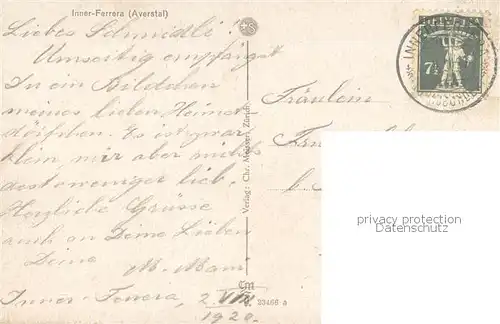 Inner-Ferrera (Averstal)
Liebes Schmidli!
Umseitig empfangst
Du ein Bildchen
meines lieben Heimat-
dörfchen. Es ist zwar
klein, mir aber nichts
destoweniger lieb.
Herzliche Grüsse
auch an Deine Lieben
Deine
M. Mani
Inner-Ferrera, 2. VIII
1920.
Verlag: Chr. Meisser, Zürich
23466 a
Fräulein
7½
privacy protection
www.oldthing.com